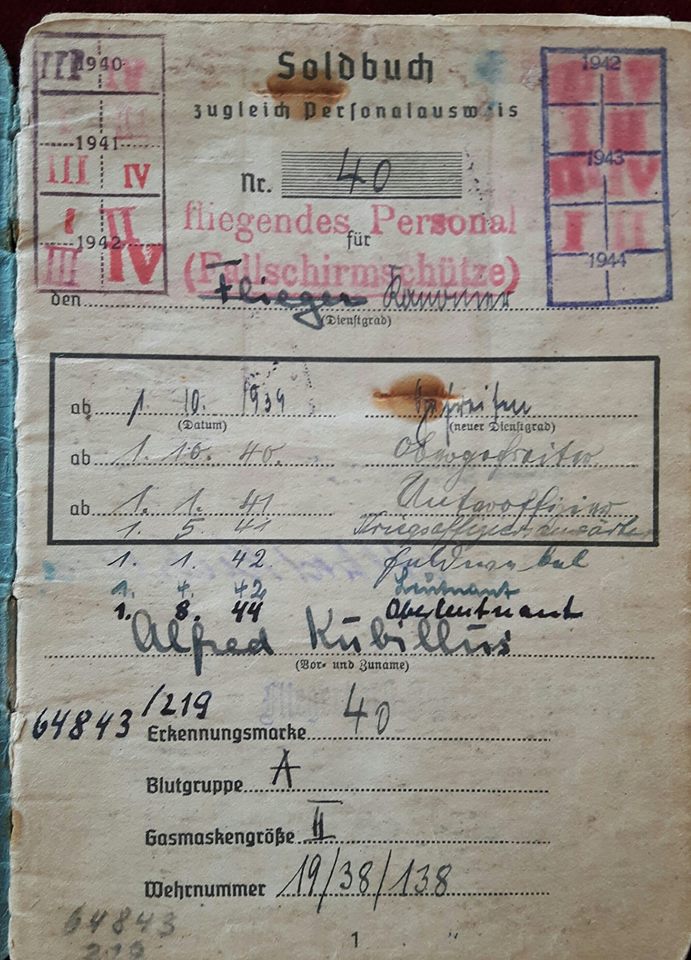 Soldbuch
zugleich Personalausweis
Nr. 40
fliegendes Personal
für
(Fallschirmschütze)
den Flieger
(Dienstgrad)
1940
III IV
1941
III IV
I II
1942
III IV
1942
IV
I II
1943
IV
I II
1944
ab 1. 10. 1939 Gefreiten
(Datum) (neuer Dienstgrad)
ab 1. 10. 40. Obergefreiter
ab 1. 1. 41 Unteroffizier
1. 5. 41
1. 1. 42. Feldwebel
1. 4. 42 Leutnant
1. 8. 44 Oberleutnant
Alfred Kubillus
(Vor- und Zuname)
64843/219
Erkennungsmarke 40
Blutgruppe A
Gasmaskengröße II
Wehrnummer 19/38/138
64843
219
1